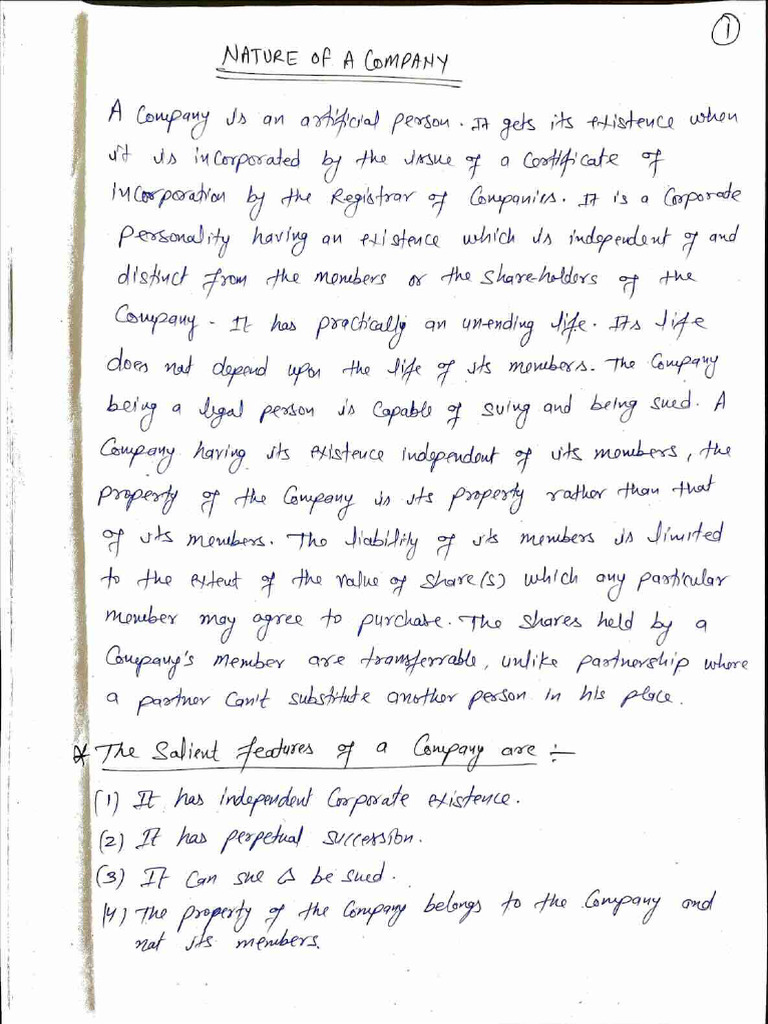 1
NATURE OF A COMPANY
A Company is an artificial person. It gets its existence when
it is incorporated by the issue of a Certificate of
incorporation by the Registrar of Companies. It is a Corporate
Personality having an existence which is independent of and
distinct from the members or the Share-holders of the
Company. It has practically an un-ending life. Its life
does not depend upon the life of its members. The Company
being a legal person is Capable of suing and being sued. A
Company having its existence independent of its members, the
property of the Company is its property rather than that
of its members. The liability of its members is limited
to the extent of the value of share(s) which any particular
member may agree to purchase. The shares held by a
Company's member are transferrable, unlike partnership where
a partner Can't substitute another person in his place.
* The Salient features of a Company are :-
(1) It has independent Corporate existence.
(2) It has perpetual succession.
(3) It Can sue & be sued.
(4) The property of the Company belongs to the Company and
not its members.